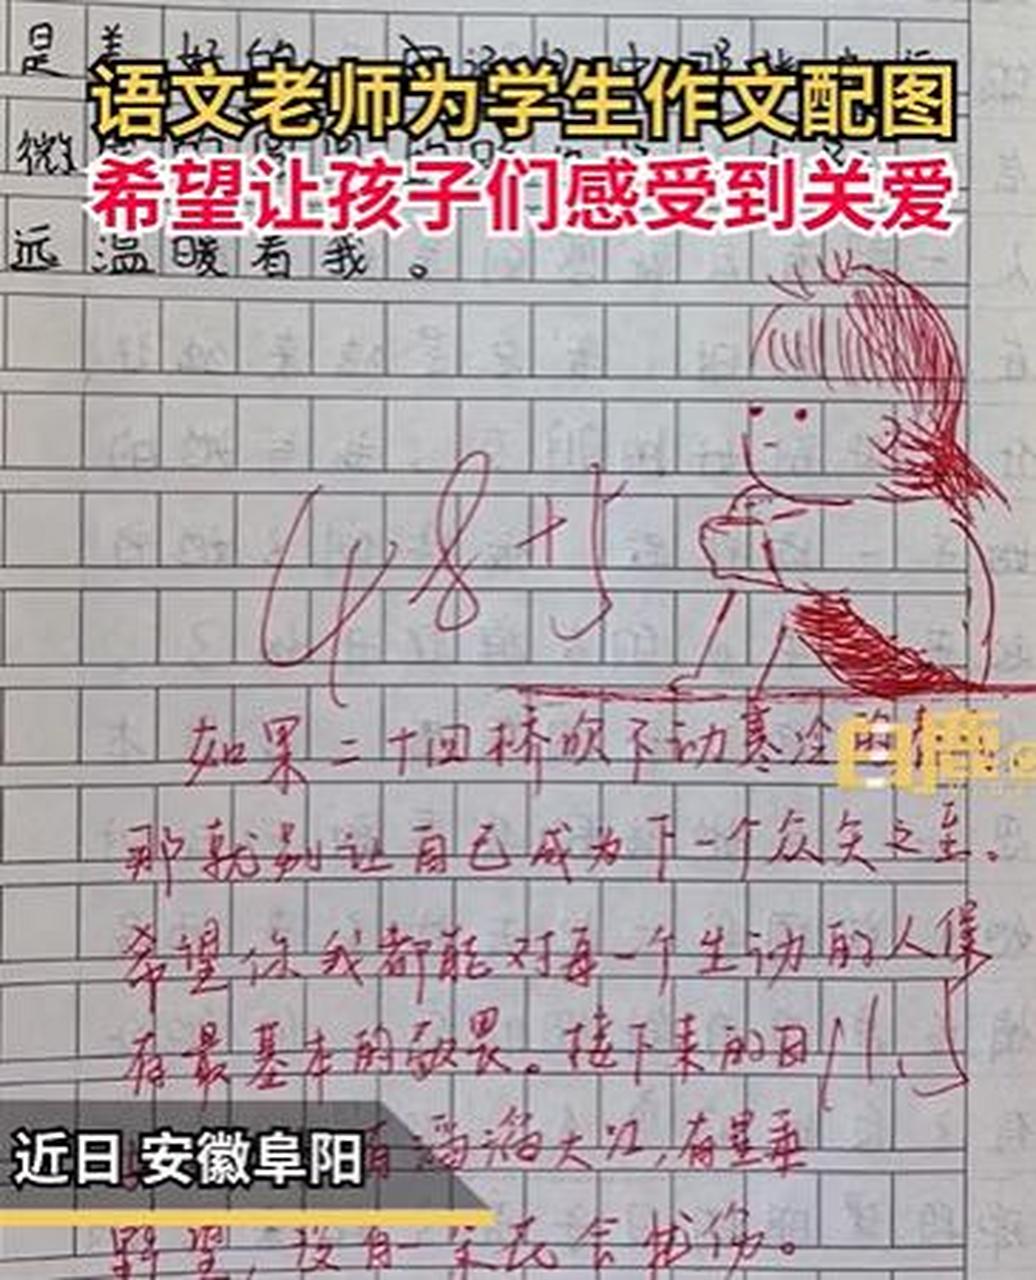 是美好的
语文老师为学生作文配图
微
希望让孩子们感受到关爱
远温暖着我。
48+5
如果二十四桥吹不动寒冷的
那就别让自己成为下一个众矢之至。
希望你我都能对每一个生动的人保
存最基本的敬畏。接下来的日
有滔滔大江,有星垂
近日 安徽阜阳
野望,没有一朵花会